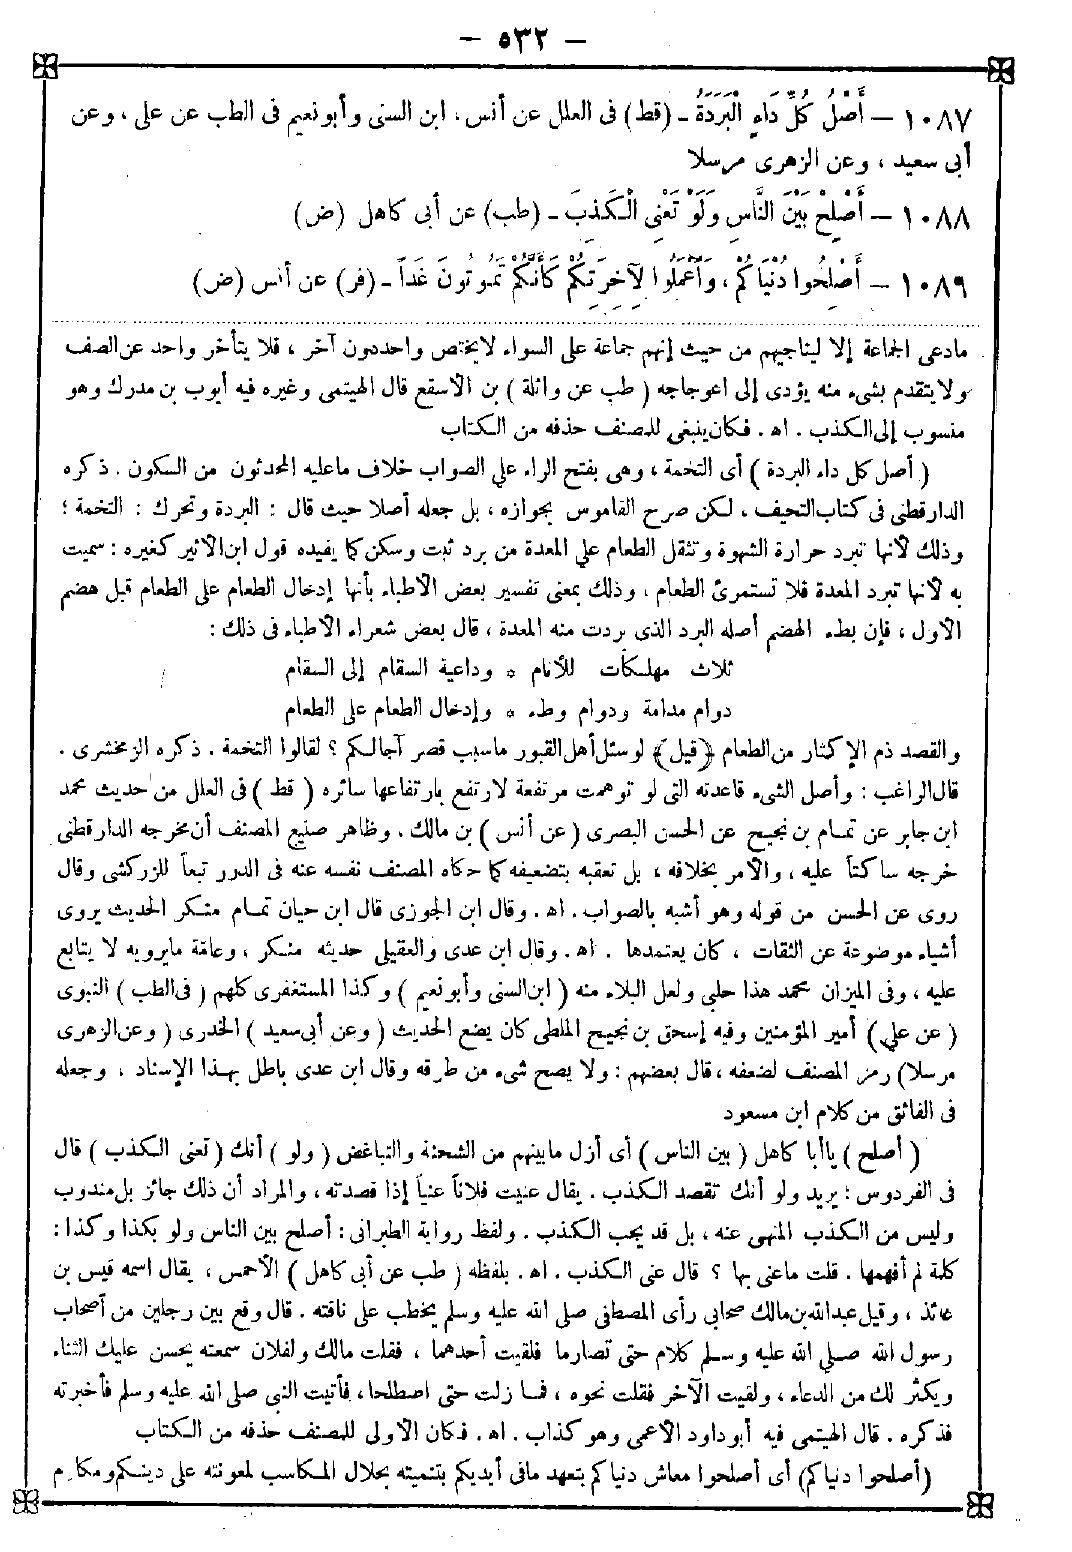 — ٥٣٢ —
١٠٨٧ — أَصْلُ كُلِّ دَاءٍ الْبَرَدَةُ ـ (قط) فى العلل عن أنس، ابن السنى وأبو نعيم فى الطب عن على، وعن
أبى سعيد، وعن الزهرى مرسلا
١٠٨٨ — أَصْلِحْ بَيْنَ النَّاسِ وَلَوْ تَعْنِى الْكَذِبَ ـ (طب) عن أبى كاهل (ض)
١٠٨٩ — أَصْلِحُوا دُنْيَاكُمْ، وَاعْمَلُوا لِآخِرَتِكُمْ كَأَنَّكُمْ تَمُوتُونَ غَداً ـ (فر) عن أنس (ض)
مادعى الجماعة إلا ليناجيهم من حيث إنهم جماعة على السواء لايختص واحد دون آخر، فلا يتأخر واحد عن الصف
ولا يتقدم بشىء منه يؤدى إلى اعوجاجه (طب عن واثلة) بن الأسقع قال الهيتمى وغيره فيه أيوب بن مدرك وهو
منسوب إلى الكذب. اهـ. فكان ينبغى للمصنف حذفه من الكتاب
(أصل كل داء البردة) أى التخمة، وهى بفتح الراء على الصواب خلاف ماعليه المحدثون من السكون. ذكره
الدارقطنى فى كتاب التحيف، لكن صرح القاموس بجوازه، بل جعله أصلا حيث قال: البردة وتحرك: التخمة؛
وذلك لأنها تبرد حرارة الشهوة وتثقل الطعام على المعدة من برد ثبت وسكن كما يفيده قول ابن الأثير كغيره: سميت
به لأنها تبرد المعدة فلا تستمرئ الطعام، وذلك بمعنى تفسير بعض الأطباء بأنها إدخال الطعام على الطعام قبل هضم
الأول، فإن بطء الهضم أصله البرد الذى بردت منه المعدة، قال بعض شعراء الأطباء فى ذلك:
ثلاث مهلكات للأنام * وداعية السقام إلى السقام
دوام مدامة ودوام وطء * وإدخال الطعام على الطعام
والقصد ذم الإكثار من الطعام (قيل) لو سئل أهل القبور ماسبب قصر آجالكم؟ لقالوا التخمة. ذكره الزمخشرى.
قال الراغب: وأصل الشىء قاعدته التى لو توهمت مرتفعة لارتفع بارتفاعها سائره (قط) فى العلل من حديث محمد
ابن جابر عن تمام بن نجيح عن الحسن البصرى (عن أنس) بن مالك. وظاهر صنيع المصنف أن مخرجه الدارقطنى
خرجه ساكتاً عليه، والأمر بخلافه، بل تعقبه بتضعيفه كما حكاه المصنف نفسه عنه فى الدرر تبعاً للزركشى وقال
روى عن الحسن من قوله وهو أشبه بالصواب. اهـ. وقال ابن الجوزى قال ابن حبان تمام منكر الحديث يروى
أشياء موضوعة عن الثقات، كان يعتمدها. اهـ. وقال ابن عدى والعقيلى حديثه منكر، وعامة مايرويه لا يتابع
عليه، وفى الميزان محمد هذا حلبى ولعل البلاء منه (ابن السنى وأبو نعيم) وكذا المستغفرى كلهم (فى الطب) النبوى
(عن على) أمير المؤمنين وفيه إسحق بن نجيح الملطى كان يضع الحديث (وعن أبى سعيد) الخدرى (وعن الزهرى
مرسلا) رمز المصنف لضعفه، قال بعضهم: ولا يصح شىء من طرقه وقال ابن عدى باطل بهذا الإسناد، وجعله
فى الفائق من كلام ابن مسعود
(أصلح) ياأبا كاهل (بين الناس) أى أزل مابينهم من الشحنة والتباغض (ولو) أنك (تعنى الكذب) قال
فى الفردوس: يريد ولو أنك تقصد الكذب. يقال عنيت فلاناً عنياً إذا قصدته، والمراد أن ذلك جائز بل مندوب
وليس من الكذب المنهى عنه، بل قد يجب الكذب. ولفظ رواية الطبرانى: أصلح بين الناس ولو بكذا وكذا:
كلمة لم أفهمها. قلت ماعنى بها؟ قال عنى الكذب. اهـ. بلفظه (طب عن أبى كاهل) الأحمس، يقال اسمه قيس بن
عائذ، وقيل عبدالله بن مالك صحابى رأى المصطفى صلى الله عليه وسلم يخطب على ناقته. قال وقع بين رجلين من أصحاب
رسول الله صلى الله عليه وسلم كلام حتى تصارما فلقيت أحدهما، فقلت مالك ولفلان سمعته يحسن عليك الثناء
ويكثر لك من الدعاء، ولقيت الآخر فقلت نحوه، فما زلت حتى اصطلحا، فأتيت النبى صلى الله عليه وسلم فأخبرته
فذكره. قال الهيتمى فيه أبو داود الأعمى وهو كذاب. اهـ. فكان الأولى للمصنف حذفه من الكتاب
(أصلحوا دنياكم) أى أصلحوا معاش دنياكم بتعهد مافى أيديكم بتنميته بحلال المكاسب لمعونته على دينكم ومكارم